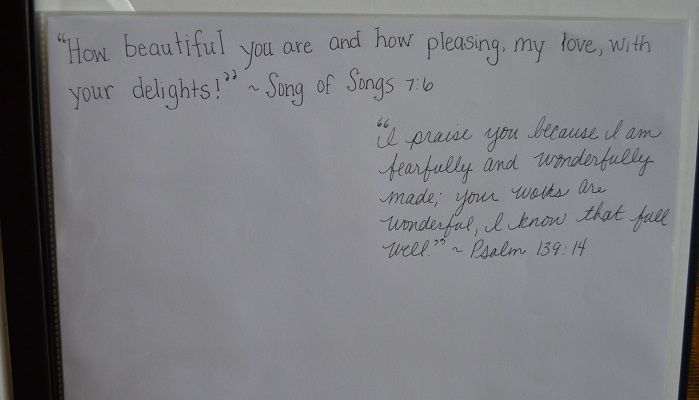 "How beautiful you are and how pleasing, my love, with
your delights!" ~ Song of Songs 7:6
"I praise you because I am
fearfully and wonderfully
made; your works are
wonderful, I know that full
well." ~ Psalm 139:14